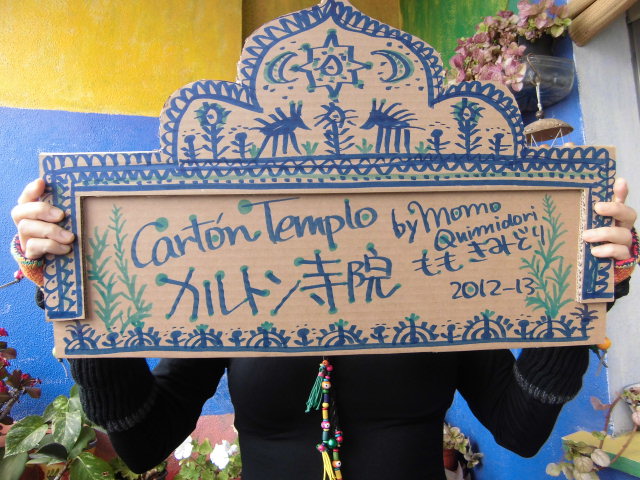 Cartón Templo
by Momo
Quimidori
カルトン寺院
もも きみどり
2012-13